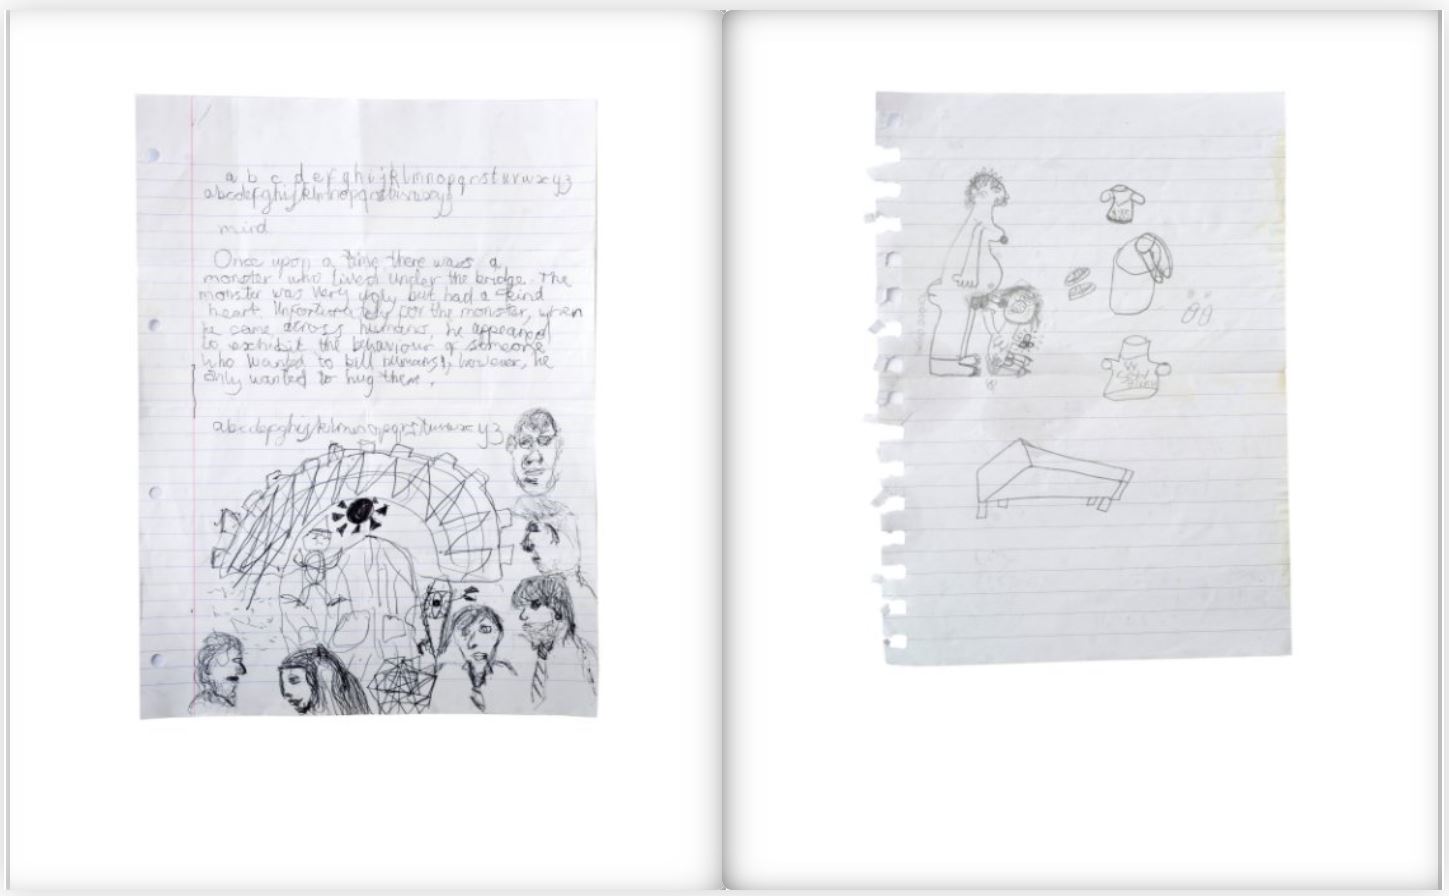 a b c d e f g h i j k l m n o p q r s t u v w x y z
abcdefghijklmnopqrstuvwxyz
mird
Once upon a time there was a
monster who lived under the bridge. The
monster was very ugly but had a kind
heart. Unfortunately for the monster, when
he came across humans, he appeared
to exhibit the behaviour of someone
who wanted to kill humans, however, he
only wanted to hug them.
abcdefghijklmnopqrstuvwxyz